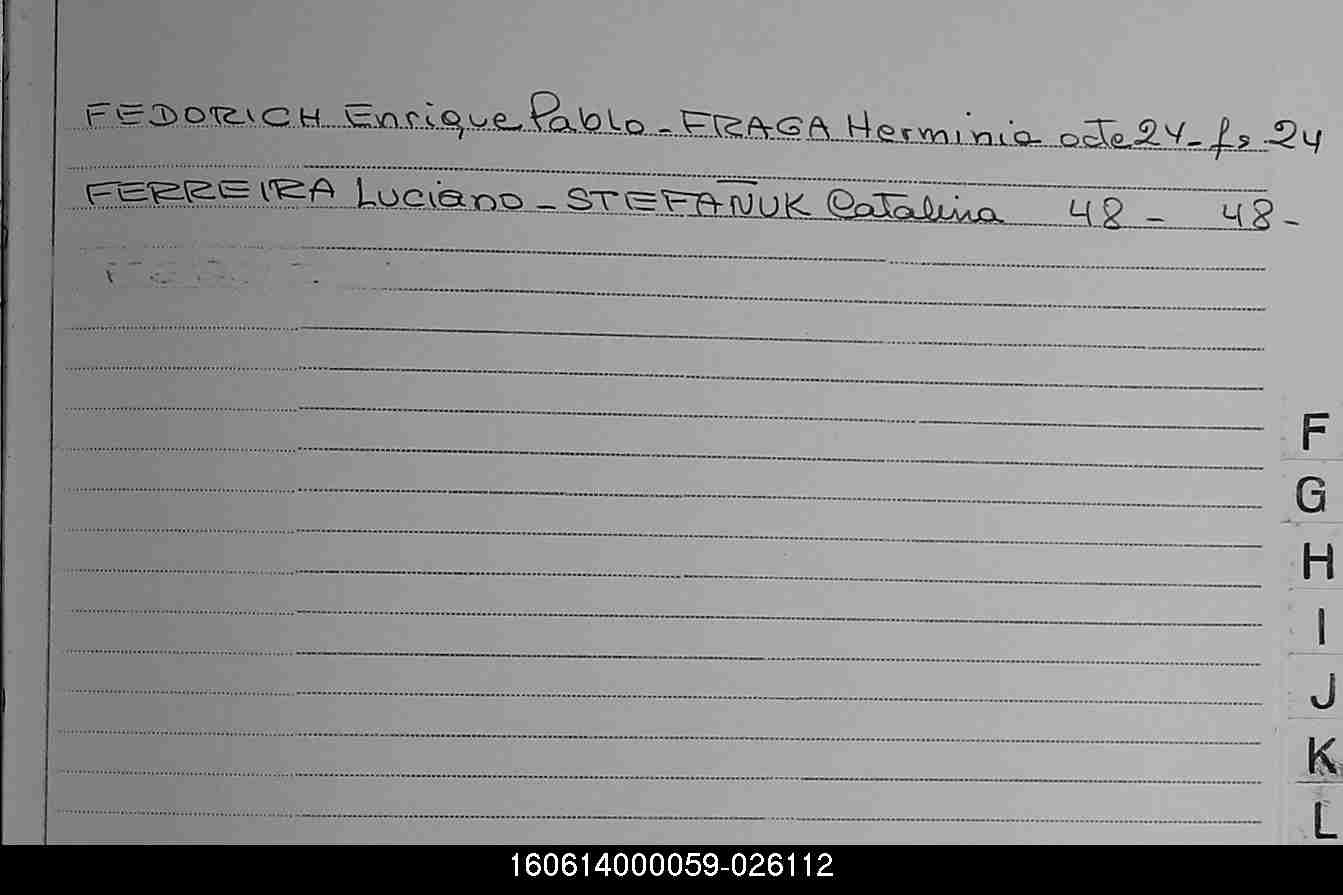 FEDORICH Enrique Pablo - FRAGA Herminia acta 24 - fs. 24
FERREIRA Luciano - STEFAÑUK Catalina 48 - 48 -
F
G
H
I
J
K
L
160614000059-026112